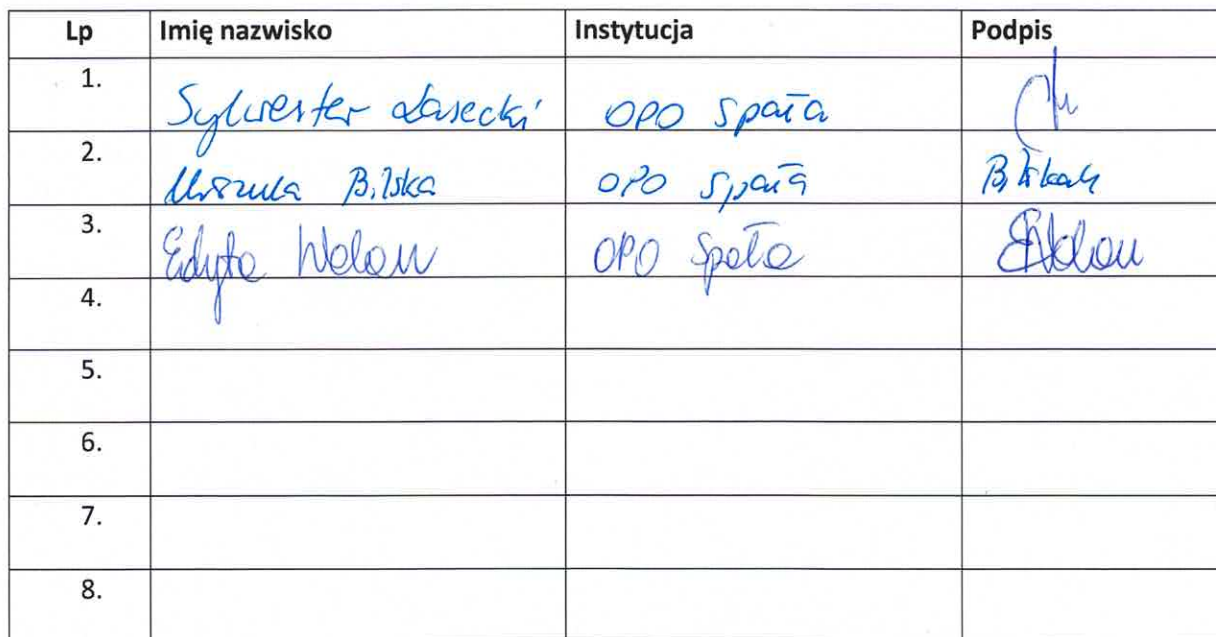 Lp Imię nazwisko Instytucja Podpis
1. Sylwester Lasecki OPO Spała
2. Urszula Bilska OPO Spała
3. Edyta Wolan OPO Spała
4.
5.
6.
7.
8.